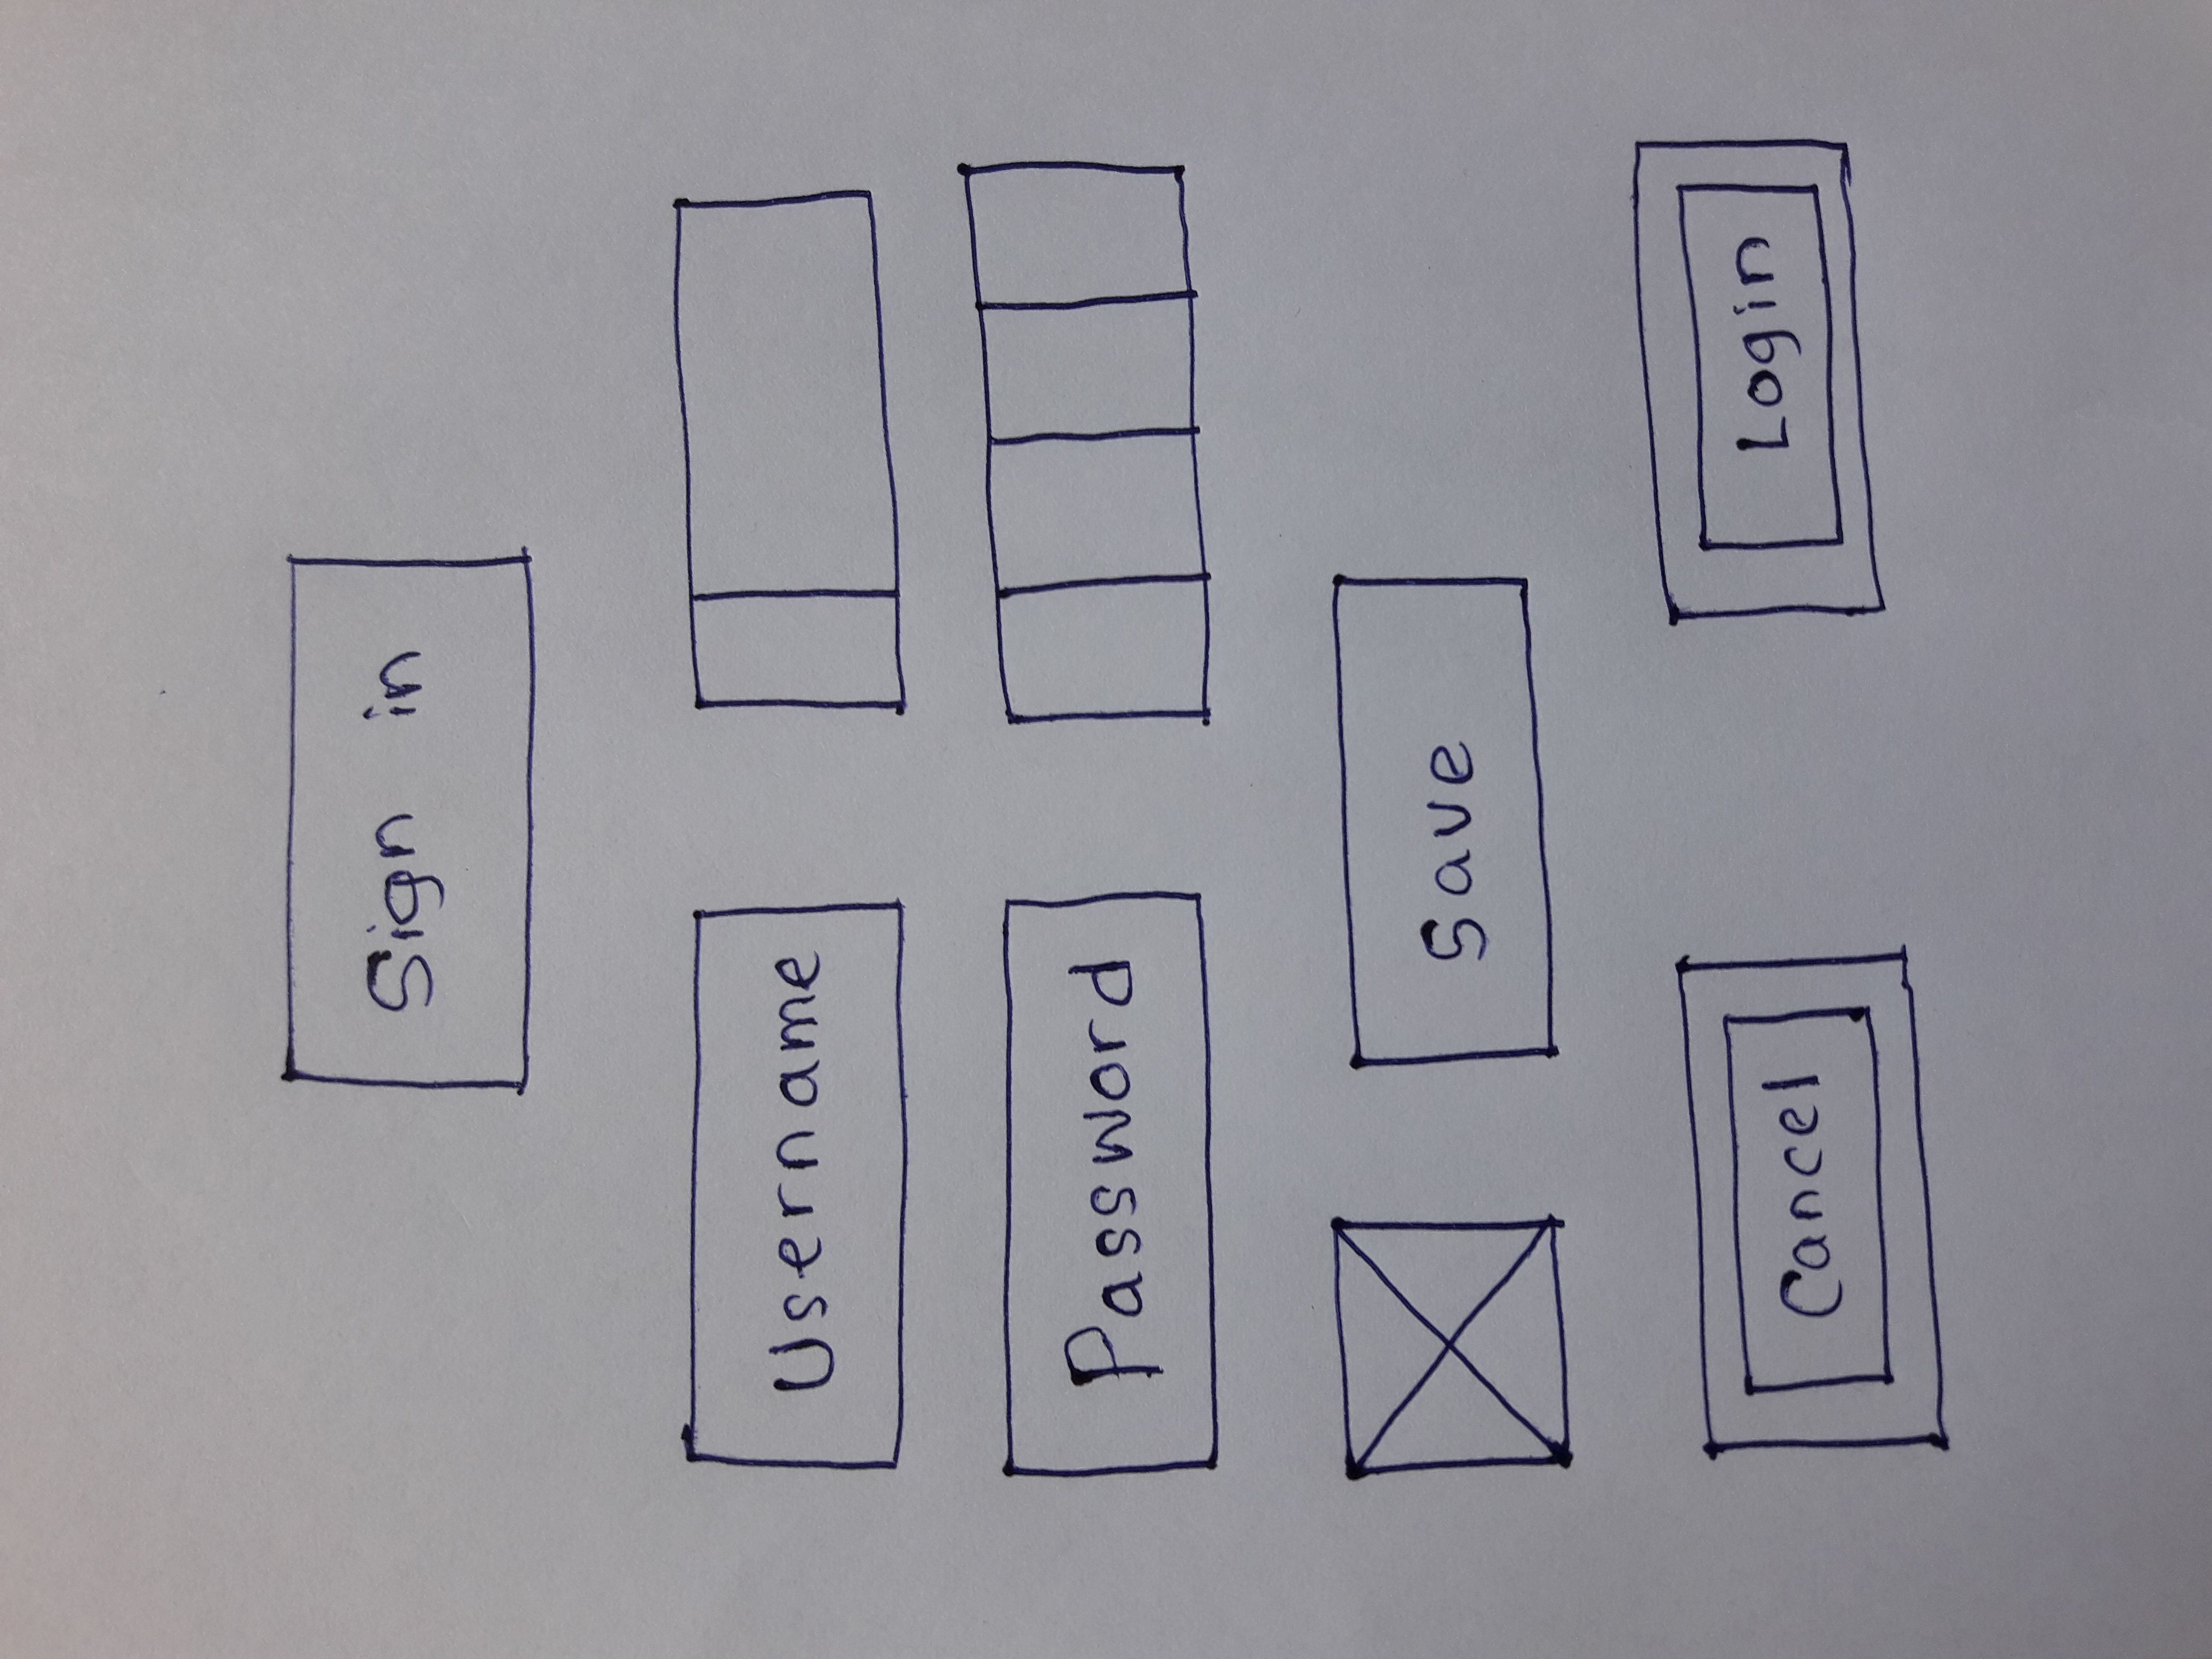 Sign in
Username
Password
Save
Cancel
Login